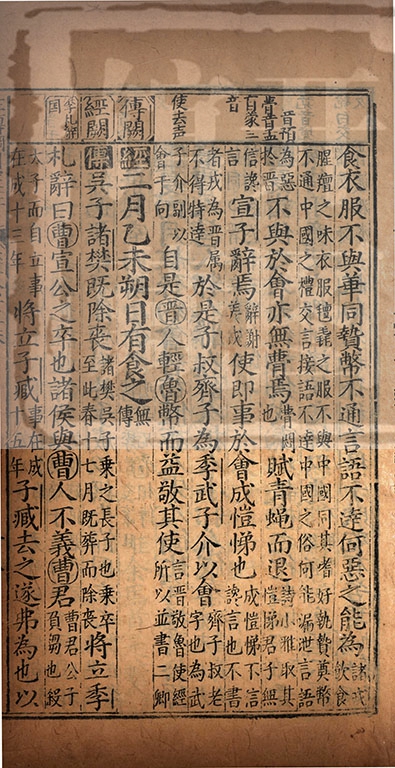 食衣服不與華同贄幣不通言語不達何惡之能為諸戎飲食
腥羶之味衣服氊毳之服不與中國同其嗜好執贄奠幣不通中國之禮交言接語不達中國之俗何能漏泄言語
為惡於晉不與於會亦無瞢焉瞢悶也賦青蠅而退詩小雅取其愷悌君子無
信讒言宣子辭焉辭謝羌戎使即事於會成愷悌也成愷悌不信讒言也不書
者戎為晉屬不得特達於是子叔齊子為季武子介以會齊子叔老字也為武
子介副以會于向自是晉人輕魯幣而益敬其使言晉敬魯使經所以並書二卿
經二月乙未朔日有食之無傳
傳吳子諸樊既除喪諸樊吳子乘之長子也乘卒至此春十七月既葬而除喪將立季
札辭曰曹宣公之卒也諸侯與曹人不義曹君曹君公子負芻也殺
太子而自立事在成十三年將立子臧事在成十五年子臧去之遂弗為也以
音預
使去声
傳闕
經闕